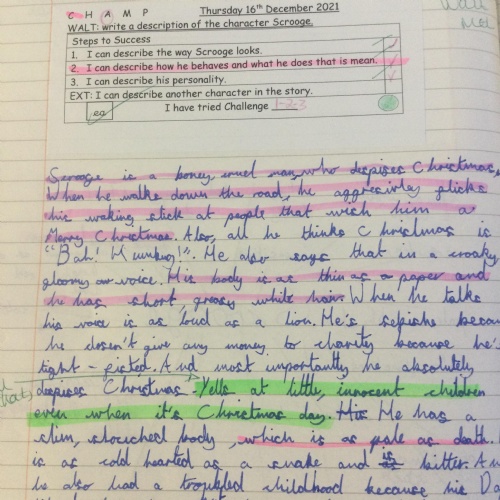 C H A M P
Thursday 16th December 2021
WALT: write a description of the character Scrooge.
Steps to Success
1. I can describe the way Scrooge looks.
2. I can describe how he behaves and what he does that is mean.
3. I can describe his personality.
EXT: I can describe another character in the story.
I have tried Challenge 1-2-3
Scrooge is a boney, cruel man, who despises Christmas.
When he walks down the road, he aggresivley flicks
his waking stick at people that wish him a
Merry Christmas. Also, all he thinks Christmas is
"Bah! Humbug!". He also says that in a croaky,
gloomy voice. His body is as thin as a paper and
he has short, greasy white hair. When he talks
his voice is as loud as a lion. He's selfishe becau
he doesn't give any money to charity because he's
tight-fisted. And most importantly he absolutely
despises Christmas. Yells at little, innocent children
even when it's Christmas day. He has a
slim, slouched body, which is as pale as death.
is as cold hearted as a snake and is bitter. An
he also had a troubled childhood because his D